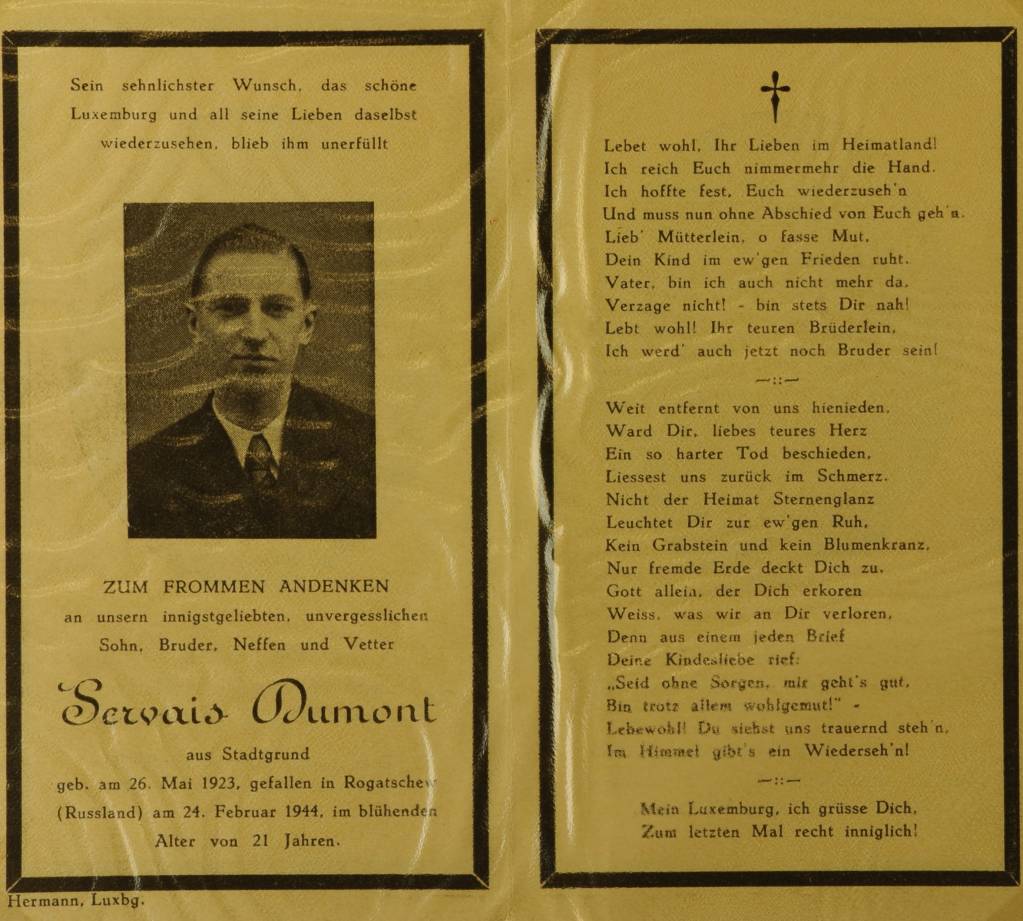 Sein sehnlichster Wunsch, das schöne
Luxemburg und all seine Lieben daselbst
wiederzusehen, blieb ihm unerfüllt
ZUM FROMMEN ANDENKEN
an unsern innigstgeliebten, unvergesslichen
Sohn, Bruder, Neffen und Vetter
Servais Dumont
aus Stadtgrund
geb. am 26. Mai 1923, gefallen in Rogatschew
(Russland) am 24. Februar 1944, im blühenden
Alter von 21 Jahren.
Hermann, Luxbg.
Lebet wohl, Ihr Lieben im Heimatland!
Ich reich Euch nimmermehr die Hand.
Ich hoffte fest, Euch wiederzuseh'n
Und muss nun ohne Abschied von Euch geh'n.
Lieb' Mütterlein, o fasse Mut,
Dein Kind im ew'gen Frieden ruht.
Vater, bin ich auch nicht mehr da,
Verzage nicht! - bin stets Dir nah!
Lebt wohl! Ihr teuren Brüderlein,
Ich werd' auch jetzt noch Bruder sein!
—::—
Weit entfernt von uns hienieden,
Ward Dir, liebes teures Herz
Ein so harter Tod beschieden,
Liessest uns zurück im Schmerz.
Nicht der Heimat Sternenglanz
Leuchtet Dir zur ew'gen Ruh,
Kein Grabstein und kein Blumenkranz,
Nur fremde Erde deckt Dich zu.
Gott allein, der Dich erkoren
Weiss, was wir an Dir verloren,
Denn aus einem jeden Brief
Deine Kindesliebe rief:
„Seid ohne Sorgen, mir geht's gut,
Bin trotz allem wohlgemut!" -
Lebewohl! Du siehst uns trauernd steh'n,
Im Himmel gibt's ein Wiederseh'n!
—::—
Mein Luxemburg, ich grüsse Dich,
Zum letzten Mal recht inniglich!